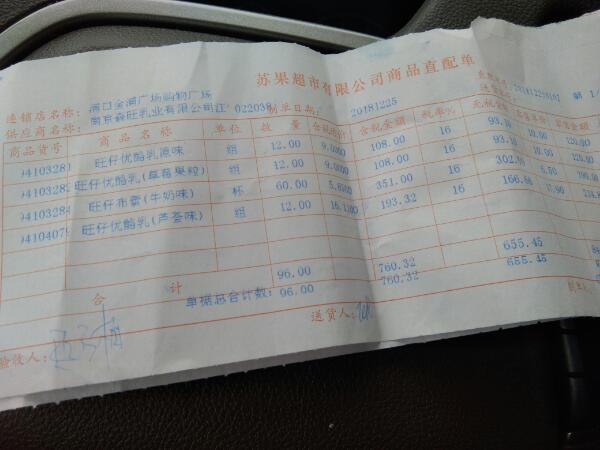 苏果超市有限公司商品直配单
连锁店名称: 浦口金浦广场购物广场
供应商名称: 南京森旺乳业有限公司江 022038 制单日期: 20181225 第 1/
商品货号 商品名称 单位 数量 含税进价 含税金额 税率% 无税金额
)410328 旺仔优酪乳原味 组 12.00 9.0000 108.00 16 93.10 10.00 120.00
)410328 旺仔优酪乳(草莓果粒) 组 12.00 9.0000 108.00 16 93.10 10.00 120.00
)410328 旺仔布蕾(牛奶味) 杯 60.00 5.8500 351.00 16 302.
)410407 旺仔优酪乳(芦荟味) 组 12.00 16.1100 193.32 16 166.66
合计 96.00 760.32 655.45
单据总合计数: 96.00 760.32 655.45
验收人: 送货人: